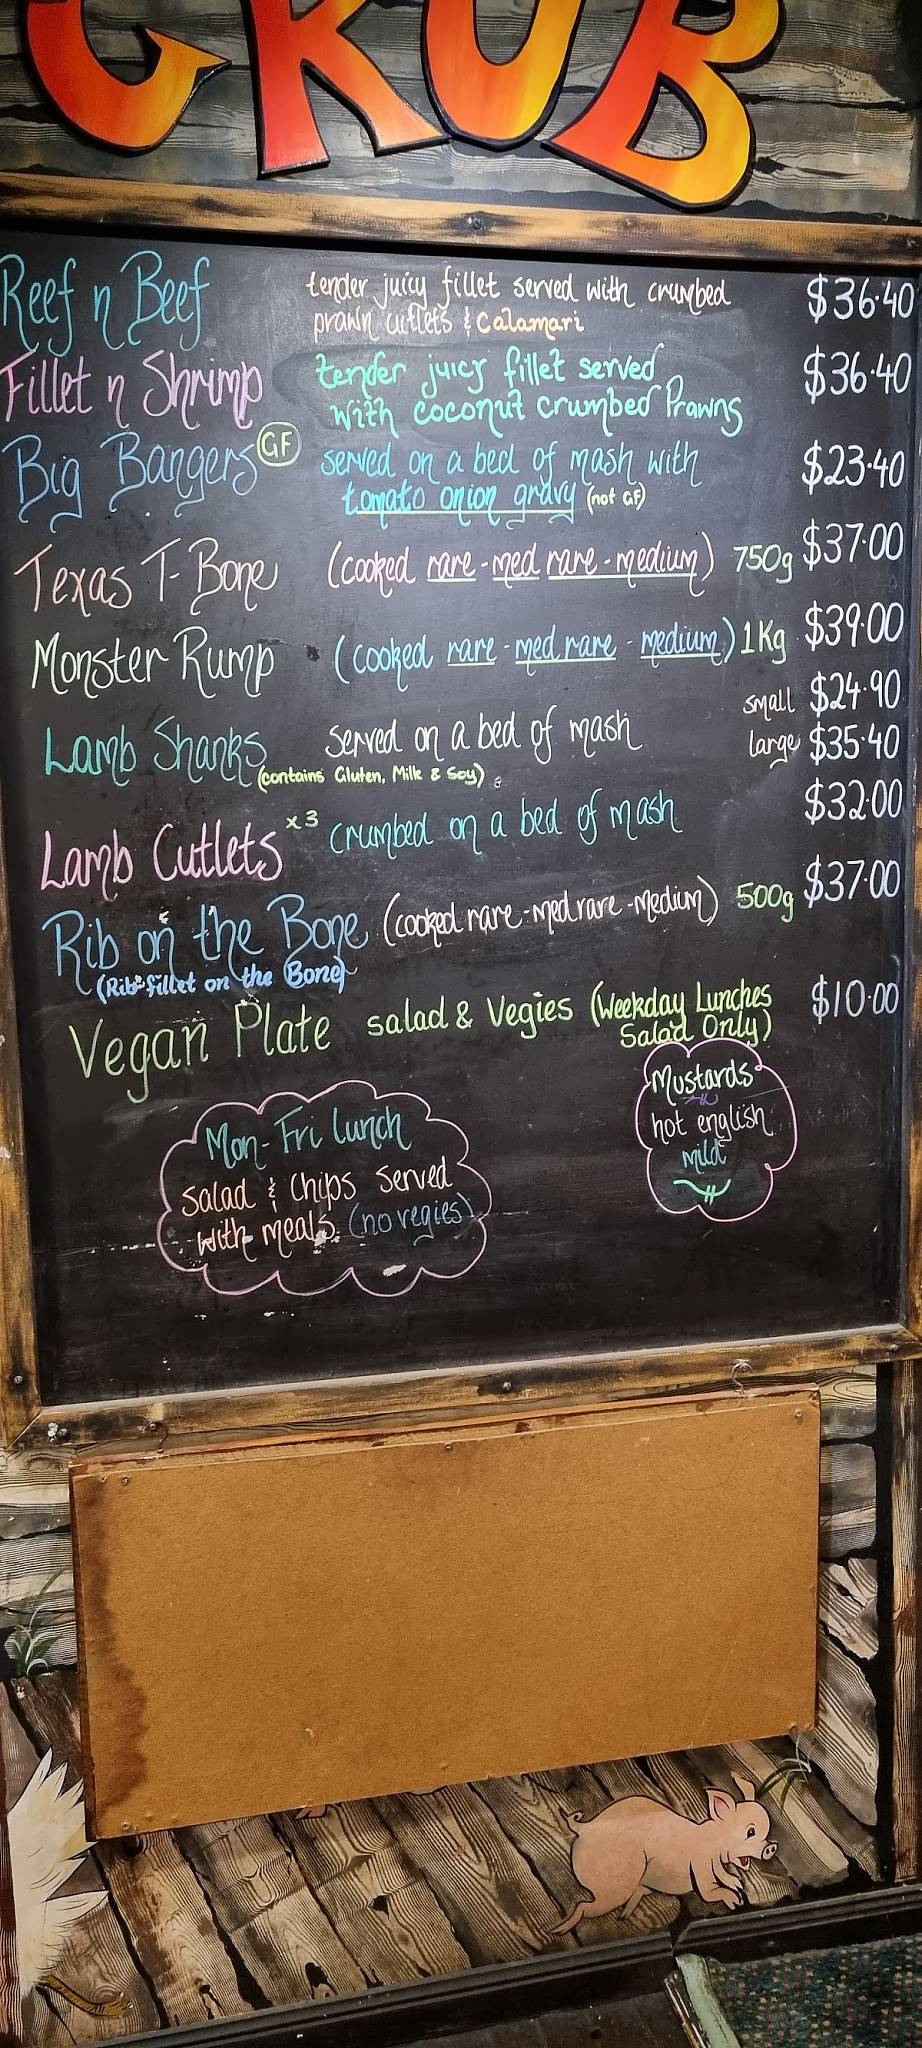 GRUB
Reef n Beef tender juicy fillet served with crumbed $36.40
prawn cutlets & Calamari
Fillet n Shrimp tender juicy fillet served $36.40
with coconut crumbed Prawns
Big Bangers GF served on a bed of mash with $23.40
tomato onion gravy (not GF)
Texas T-Bone (cooked rare - med rare - medium) 750g $37.00
Monster Rump (cooked rare - med rare - medium) 1Kg $39.00
small $24.90
Lamb Shanks Served on a bed of mash large $35.40
(contains Gluten, Milk & Soy)
Lamb Cutlets x3 crumbed on a bed of mash $32.00
Rib on the Bone (cooked rare - med rare - medium) 500g $37.00
(Rib fillet on the Bone)
Vegan Plate salad & Vegies (Weekday Lunches $10.00
Salad Only)
Mon-Fri lunch
Salad & Chips served
with meals (no vegies)
Mustards
hot english
mild